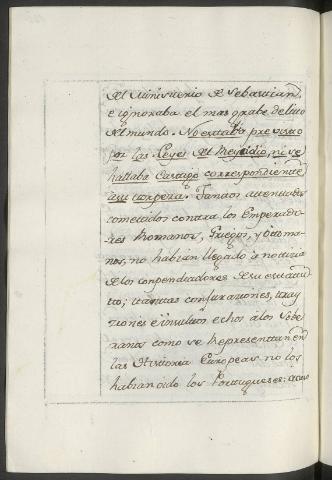 del Ministerio de Sebastian,
e ignoraba el mas grabe delicto
del mundo. No estaba previsto
por las Leyes del Regicidio, ni se
hallaba Castigo correspondiente
a su torpeza. Tantos atentados
cometidos contra los Emperado-
res Romanos, Griegos, y Otoma-
nos, no habian llegado à noticia
de los conpendiadores de su
to; tantas conjuraziones, tray-
ziones é insultos echos à los Sobe-
ranos como se representan en
las Historia Europeas no los
habian oido los Portugueses: